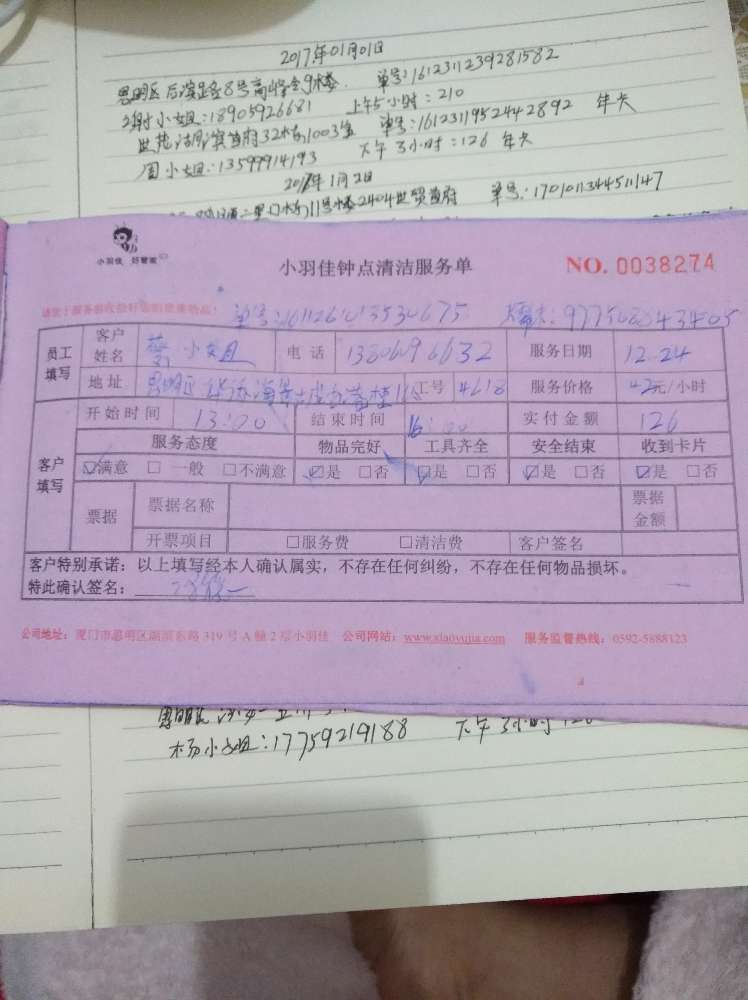 2017年01月01日
思明区后滨路8号高峰舍9楼 单号:1612311239281582
谢小姐:18905926681 上午5小时:210
湖滨首府32栋1003室 单号:1612311952442892 年卡
周小姐:13599914193 下午3小时:126 年卡
2017年1月2日
11号楼2404世贸首府 单号:1701011344511147
小羽佳 好管家
小羽佳钟点清洁服务单 NO. 0038274
单号:
员工填写 客户姓名 蔡小姐 电话 13806096632 服务日期 12.24
地址 思明区 工号 4618 服务价格 42元/小时
客户填写 开始时间 13:00 结束时间 16:00 实付金额 126
服务态度 物品完好 工具齐全 安全结束 收到卡片
☑满意 □一般 □不满意 ☑是 □否 ☑是 □否 ☑是 □否 ☑是 □否
票据 票据名称 票据金额
开票项目 □服务费 □清洁费 客户签名
客户特别承诺：以上填写经本人确认属实，不存在任何纠纷，不存在任何物品损坏。
特此确认签名：
公司地址：厦门市思明区湖滨东路319号A幢2层小羽佳 公司网站：www.xiaoyujia.com 服务监督热线：0592-5888123
思明区
杨小姐:17759219188 下午3小时